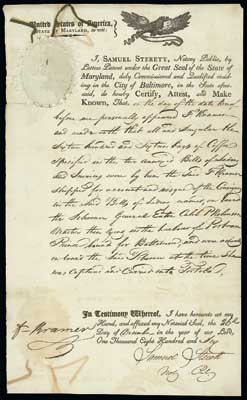 United States of America,
STATE OF MARYLAND, to wit:
I, SAMUEL STERETT, Notary Public, by
Letters Patent under the Great Seal of the State of
Maryland, duly Commissioned and Qualified resid-
ing in the City of Baltimore, in the State afore-
said, do hereby Certify, Attest, and Make
Known, That on the day of the date
before me personally appeared Kramer
and made oath that all and Singular the
Six hundred and Sixteen Bags of Coffee
Specified in the two annexed Bills of Lading
and Invoice were by him the said Kramer
Shipped for account and
in the said Bills of Lading named, on board
the Schooner General Eaton
Master then lying in the harbour of
bound for Baltimore, and were
on board the Said at the time She
was Captured and Carried into
In Testimony Whereof, I have hereunto set my
Hand, and affixed my Notarial Seal, the
Day of December in the year of our Lord,
One Thousand Eight Hundred and
Kramer
Samuel Sterett